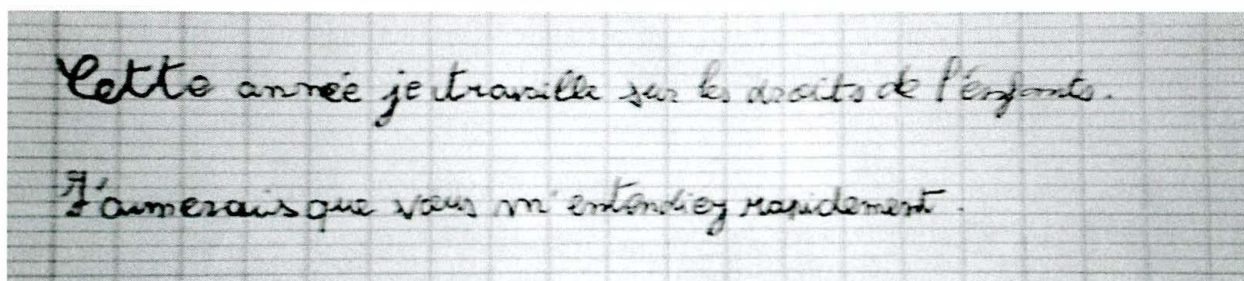 Cette année je travaille sur les droits de l'énfants.
J'aimerais que vous m'entendiez rapidement.